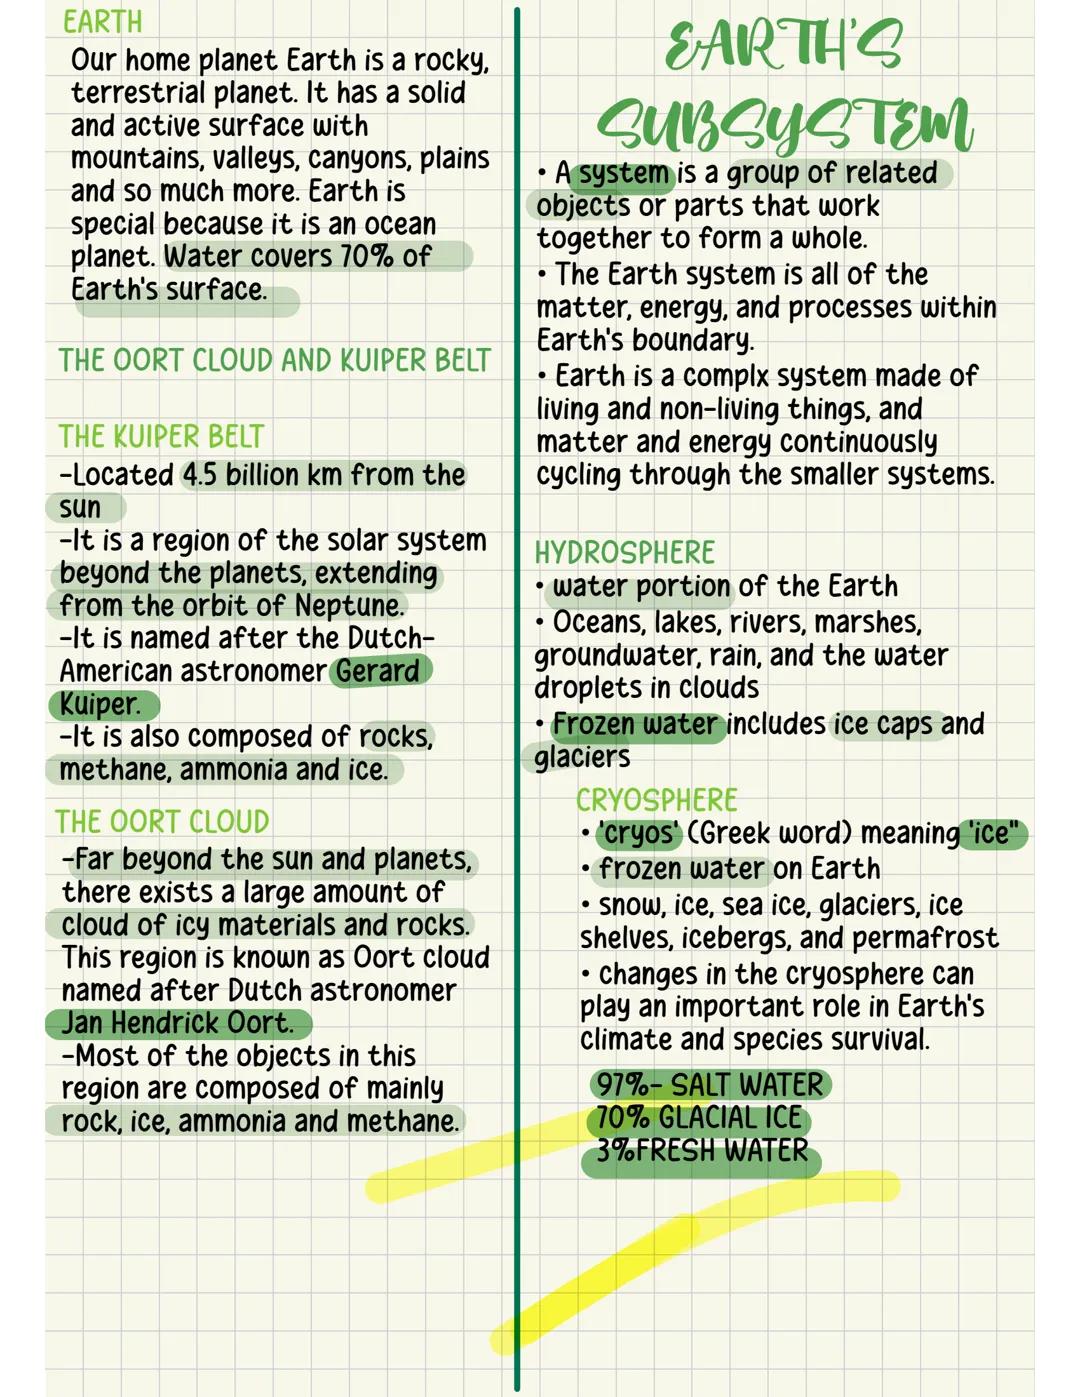 EARTH
Our home planet Earth is a rocky,
terrestrial planet. It has a solid
and active surface with
mountains, valleys, canyons, plains
and so much more. Earth is
special because it is an ocean
planet. Water covers 70% of
Earth's surface.
THE OORT CLOUD AND KUIPER BELT
THE KUIPER BELT
-Located 4.5 billion km from the
sun
-It is a region of the solar system
beyond the planets, extending
from the orbit of Neptune.
-It is named after the Dutch-
American astronomer Gerard
Kuiper.
-It is also composed of rocks,
methane, ammonia and ice.
THE OORT CLOUD
-Far beyond the sun and planets,
there exists a large amount of
cloud of icy materials and rocks.
This region is known as Oort cloud
named after Dutch astronomer
Jan Hendrick Oort.
-Most of the objects in this
region are composed of mainly
rock, ice, ammonia and methane.
EARTH'S
SUBSYSTEM
• A system is a group of related
objects or parts that work
together to form a whole.
• The Earth system is all of the
matter, energy, and processes within
Earth's boundary.
• Earth is a complx system made of
living and non-living things, and
matter and energy continuously
cycling through the smaller systems.
HYDROSPHERE
• water portion of the Earth
• Oceans, lakes, rivers, marshes,
groundwater, rain, and the water
droplets in clouds
• Frozen water includes ice caps and
glaciers
CRYOSPHERE
• 'cryos' (Greek word) meaning 'ice"
• frozen water on Earth
• snow, ice, sea ice, glaciers, ice
shelves, icebergs, and permafrost
• changes in the cryosphere can
play an important role in Earth's
climate and species survival.
97%- SALT WATER
70% GLACIAL ICE
3%FRESH WATER